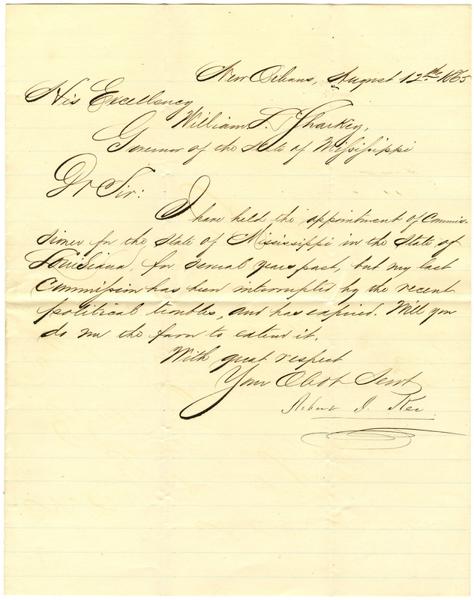 New Orleans, August 12th 1865
His Excellency
William L. Sharkey,
Governor of the State of Mississippi
Dr Sir:
I have held the appointment of Commis-
sioner for the State of Mississippi in the State of
Louisiana, for several years past, but my last
Commission has been interrupted by the recent
political troubles, and has expired. Will you
do me the favor to extend it.
With great respect
Your Obdt Servt
J. Ker